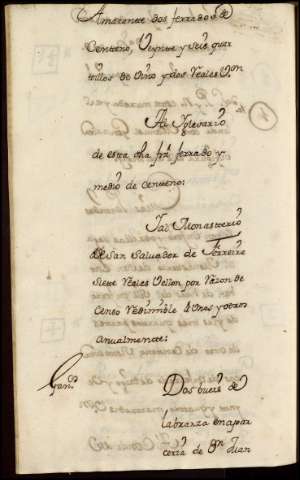 Amarante dos ferrados de
Centeno, Veynte y seis quar
tillos de vino y dos reales Von
Al Yglesario
de esta dha fra ferrado y
medio de centeno:
Y al Monasterio
de San Salvador de Ferreira
siete reales vellon por razon de
Censo redimible
anualmente:
Gando
Dos bueies de
labranza en apar
ceria de Dn Juan